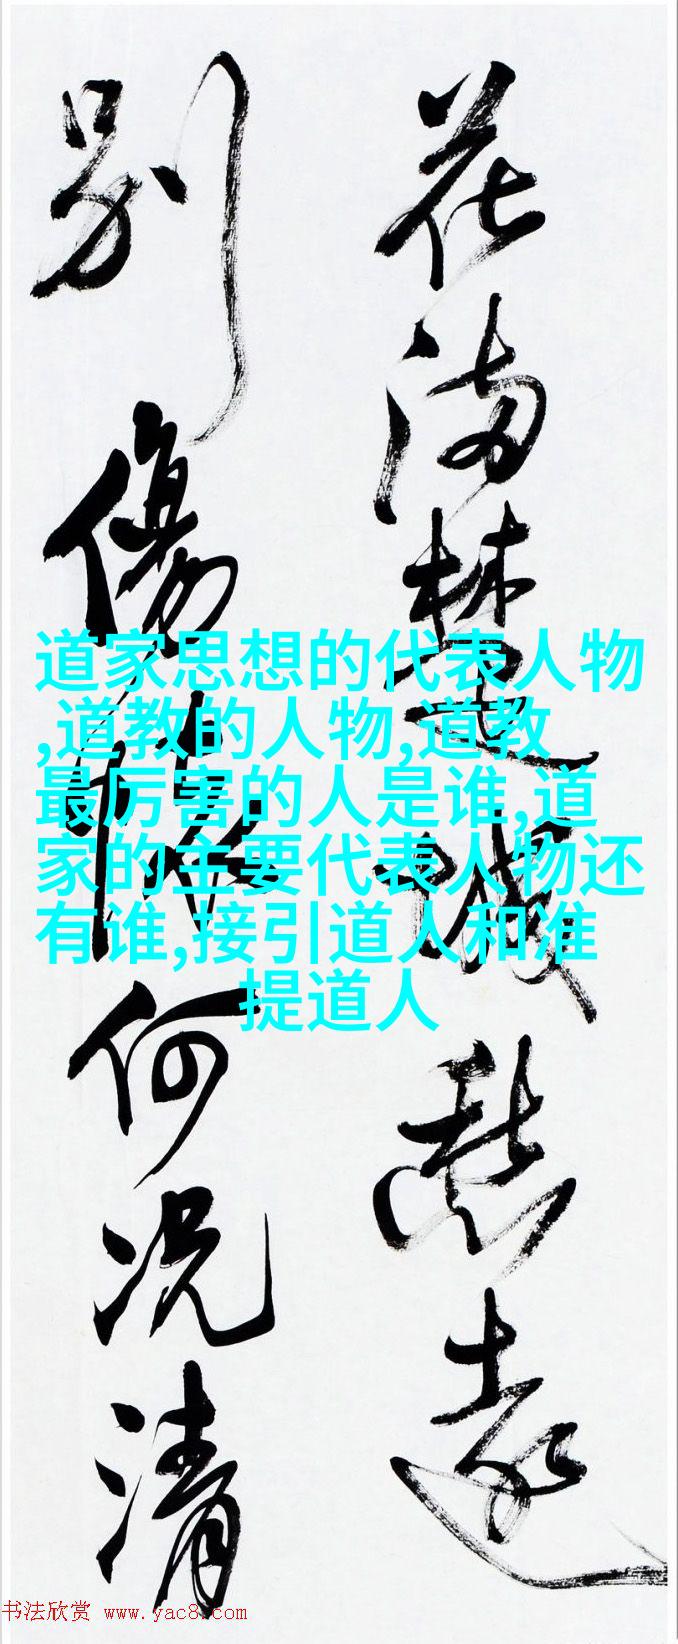 花满楚城愁远
别伤情何况清
道家思想的代表人物
,道教的人物,道教
最厉害的人是谁,道
家的主要代表人物还
有谁,接引道人和准
提道人
书法欣赏 www.yac8.com